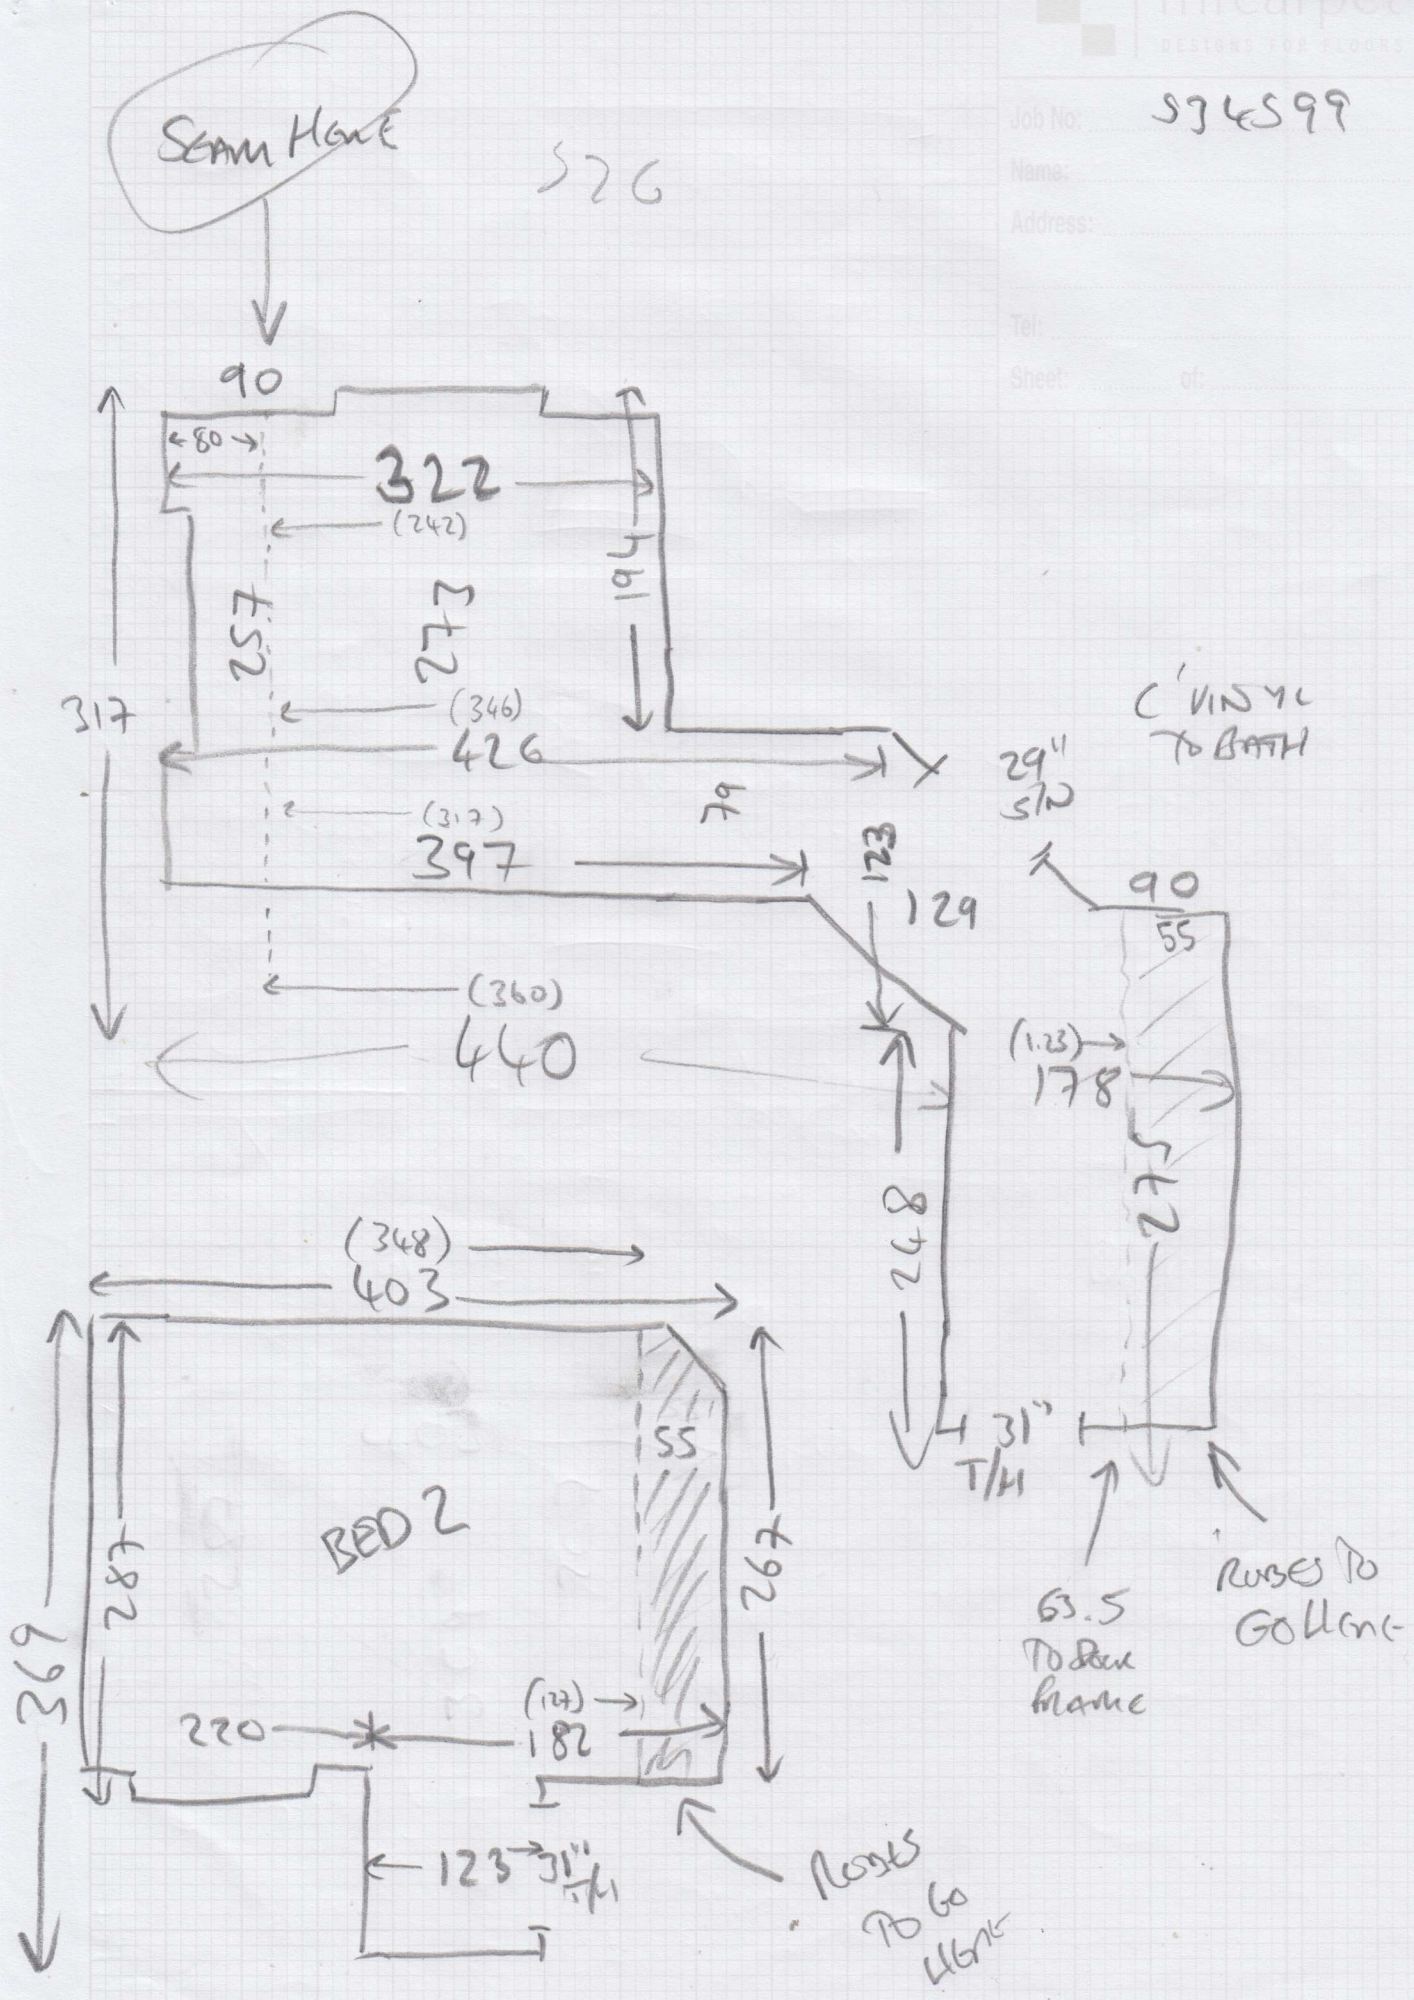 mrcarpet
DESIGNS FOR FLOORS
Job No: S34S99
Name:
Address:
Tel:
Sheet: of:
SEAM HERE
S26
90
80
322
(242)
194
257
273
317
(346)
426
79
(317)
397
123
129
(360)
440
C'VINYL
TO BATH
29"
S/N
90
55
(1.23)
178
275
248
31"
T/H
63.5
TO DOOR
FRAME
ROBES TO
GO HERE
(348)
403
369
287
BED 2
55
267
220
(127)
182
123
31"
T/H
ROBES
TO GO
HERE